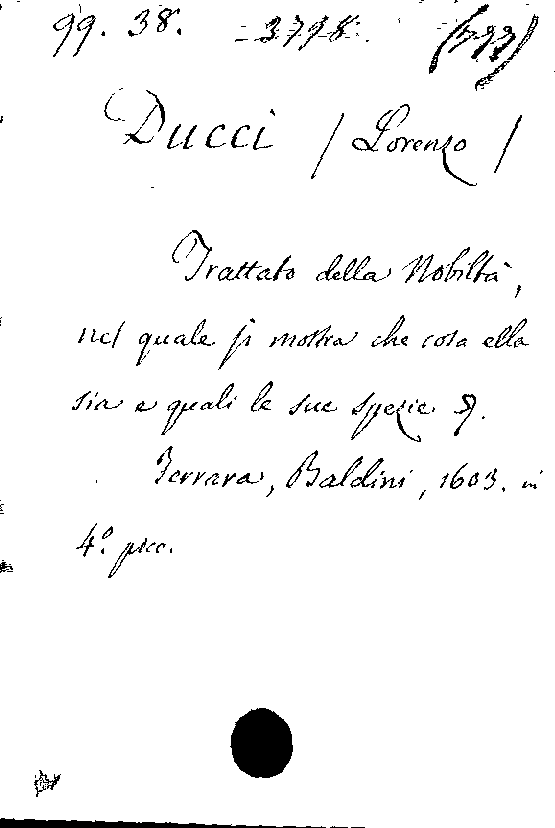 99. 38. 3798.
Ducci / Lorenzo /
Trattato della Nobiltà,
nel quale si mostra che cosa ella
sia e quali le sue spezie &.
Ferrara, Baldini, 1603. in
4º. picc.